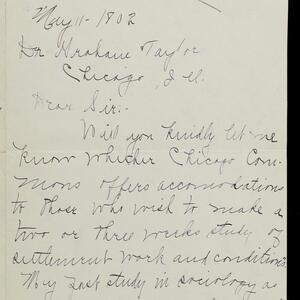 May 11 - 1902
Dr Graham Taylor
Chicago, Ill.
Dear Sir:-
Will you kindly let me
know whether Chicago Com-
mons offers accomodations
to those who wish to make a
two or three weeks study of
settlement work and conditions.
My past study in sociology as